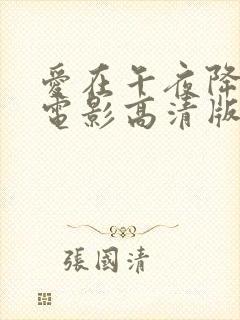 愛在午夜降
電影高清版
張國清